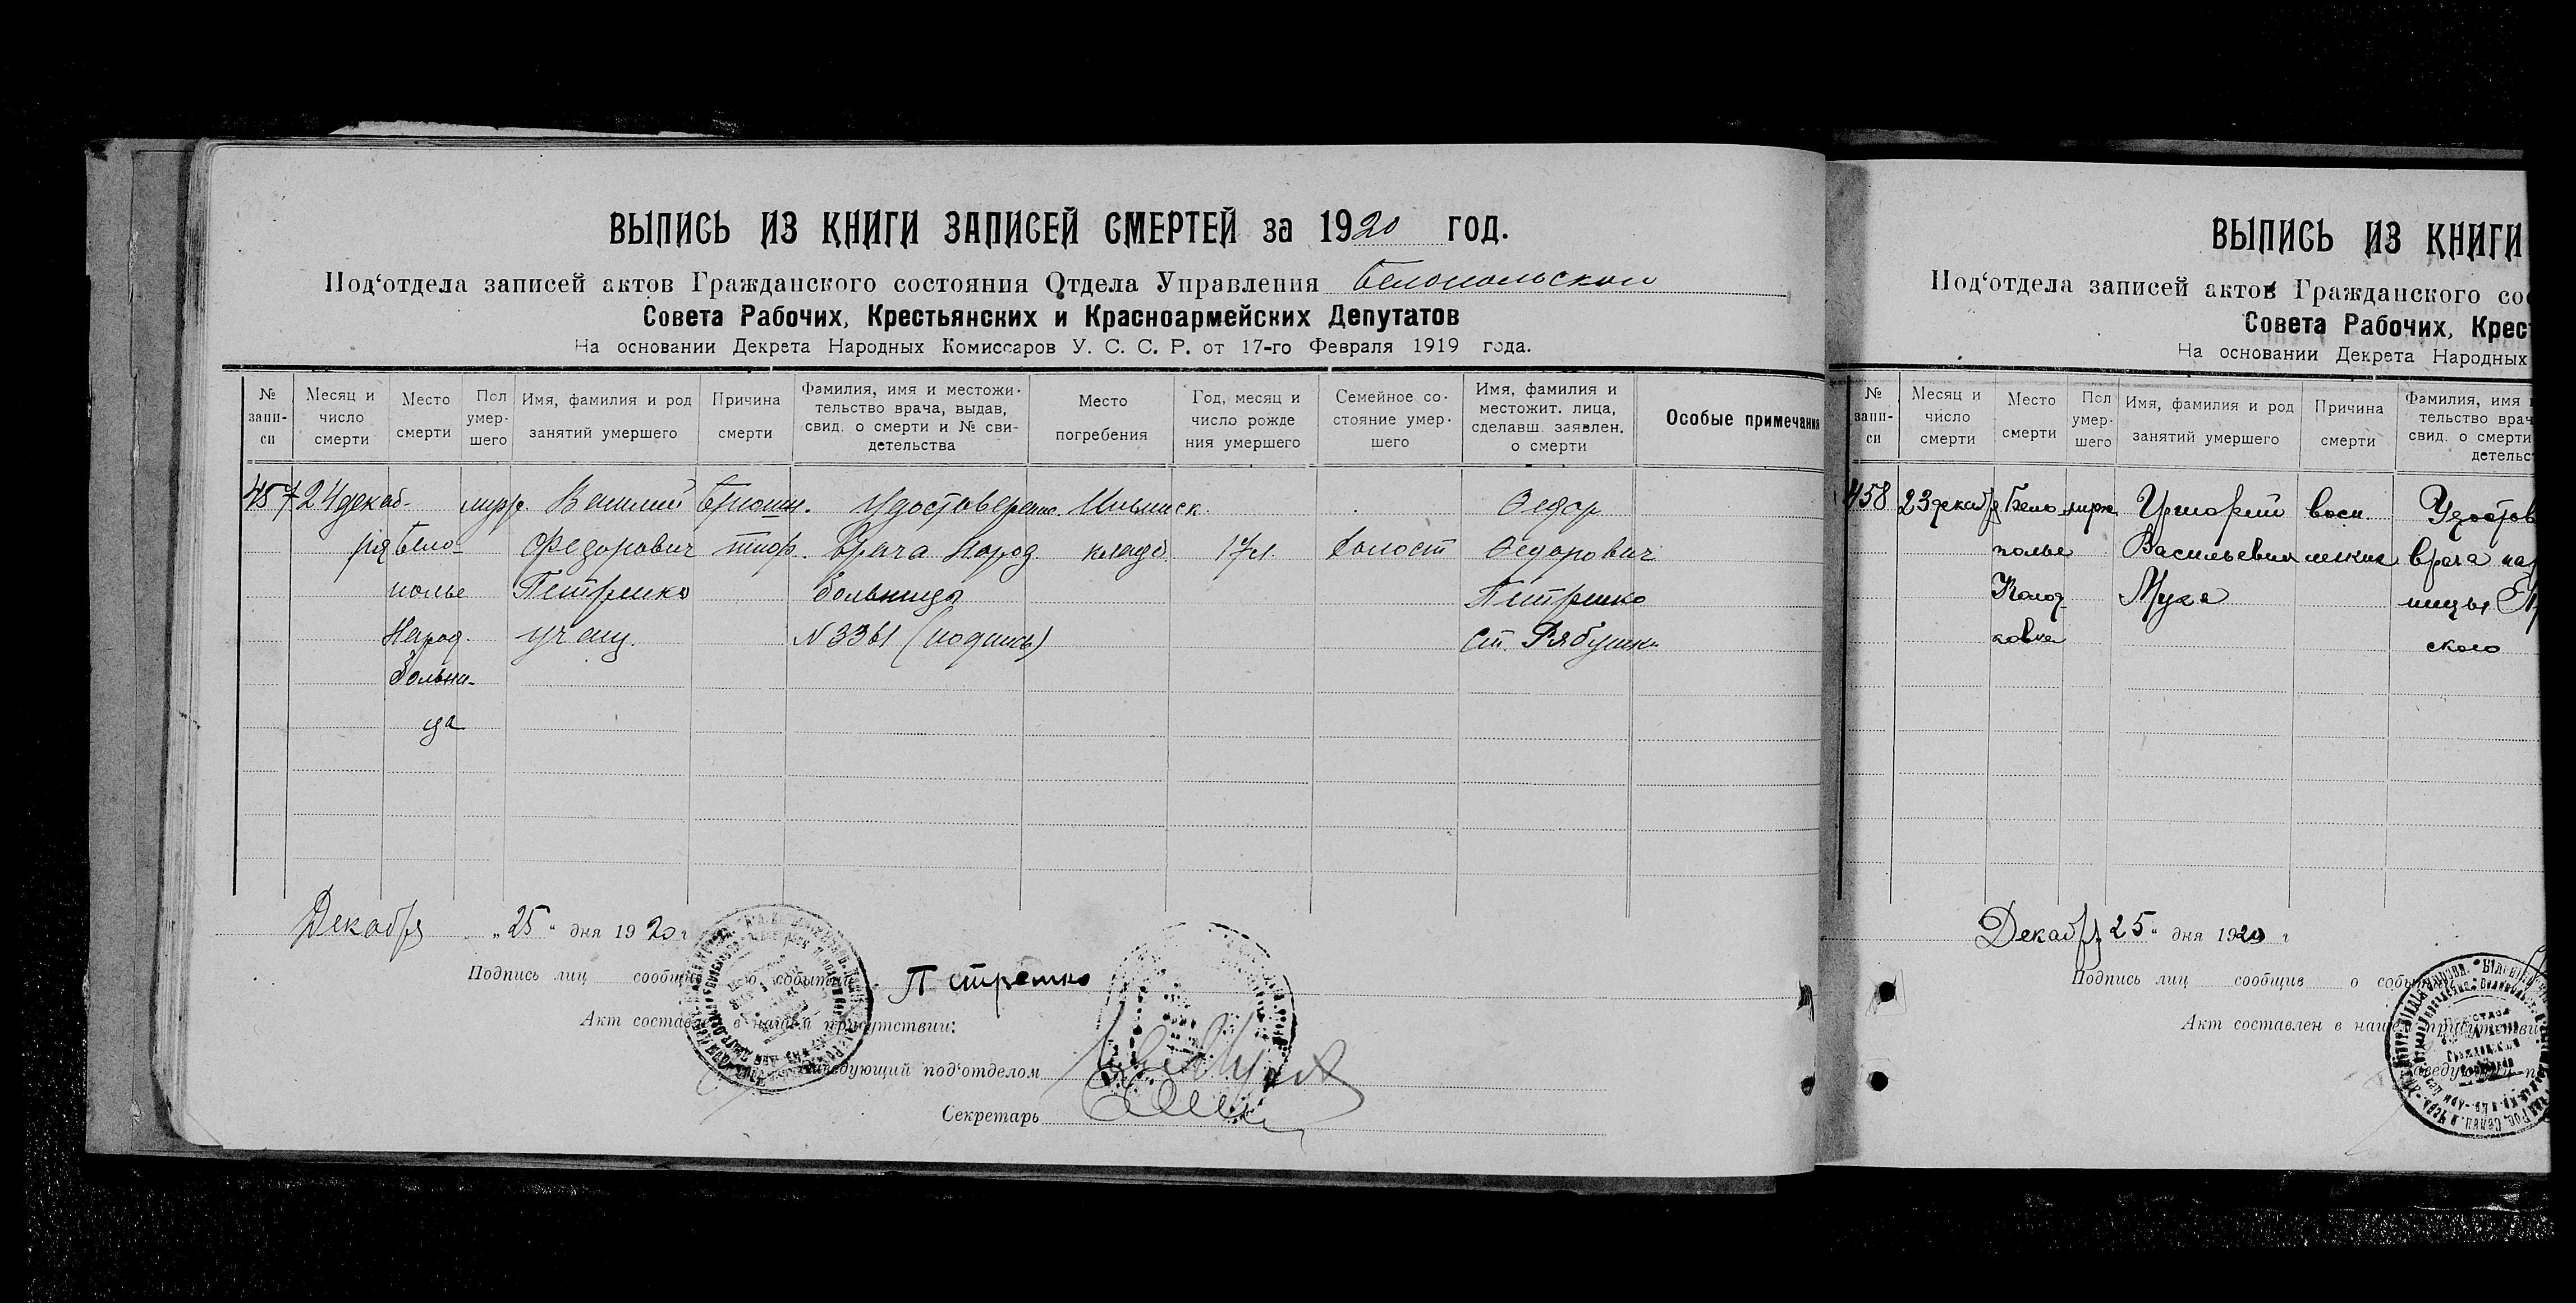 ВЫПИСЬ ИЗ КНИГИ ЗАПИСЕЙ СМЕРТЕЙ за 1920 год.
Под‘отдела записей актов Гражданского состояния Отдела Управления Белопольской
Совета Рабочих, Крестьянских и Красноармейских Депутатов
На основании Декрета Народных Комиссаров У. С. С. Р. от 17-го Февраля 1919 года.
№ запи-си
Месяц и число смерти
Место смерти
Пол умер-шего
Имя, фамилия и род занятий умершего
Причина смерти
Фамилия, имя и местожи-тельство врача, выдав, свид. о смерти и № сви-детельства
Место погребения
Год, месяц и число рожде ния умершего
Семейное со-стояние умер-шего
Имя, фамилия и местожит. лица, сделавш. заявлен. о смерти
Особые примечания
457
24 декаб-
ря
Бело-
полье
Народ.
Больни-
ца
Федорович
Петренко
учащ.
Брюшн.
тиф.
Удостоверение
врача народ.
больницы
N 3361 (подпись)
кладб.
17 л
холост
Федор
Федорович
Петренко
Ст.
Декабря „25“ дня 1920 г
Подпись лиц сообщив о событии: Петренко
Акт составлен в нашем присутствии:
Заведующий под‘отделом
Секретарь
ВЫПИСЬ ИЗ КНИГИ
Под‘отдела записей актов Гражданского со
Совета Рабочих, Крест
На основании Декрета Народных
№ запи-си
Месяц и число смерти
Место смерти
Пол умер-шего
Имя, фамилия и род занятий умершего
Причина смерти
Фамилия, имя
тельство врач
свид. о смерти
детельс
458
23 декабря
Бело
полье
Григорий
Васильевич
Муха
восп.
легких
Удостов
врача на
ницы
ского
Декабря 25“ дня 1920 г
Подпись лиц сообщив о событии
Акт составлен в нашем присутстви